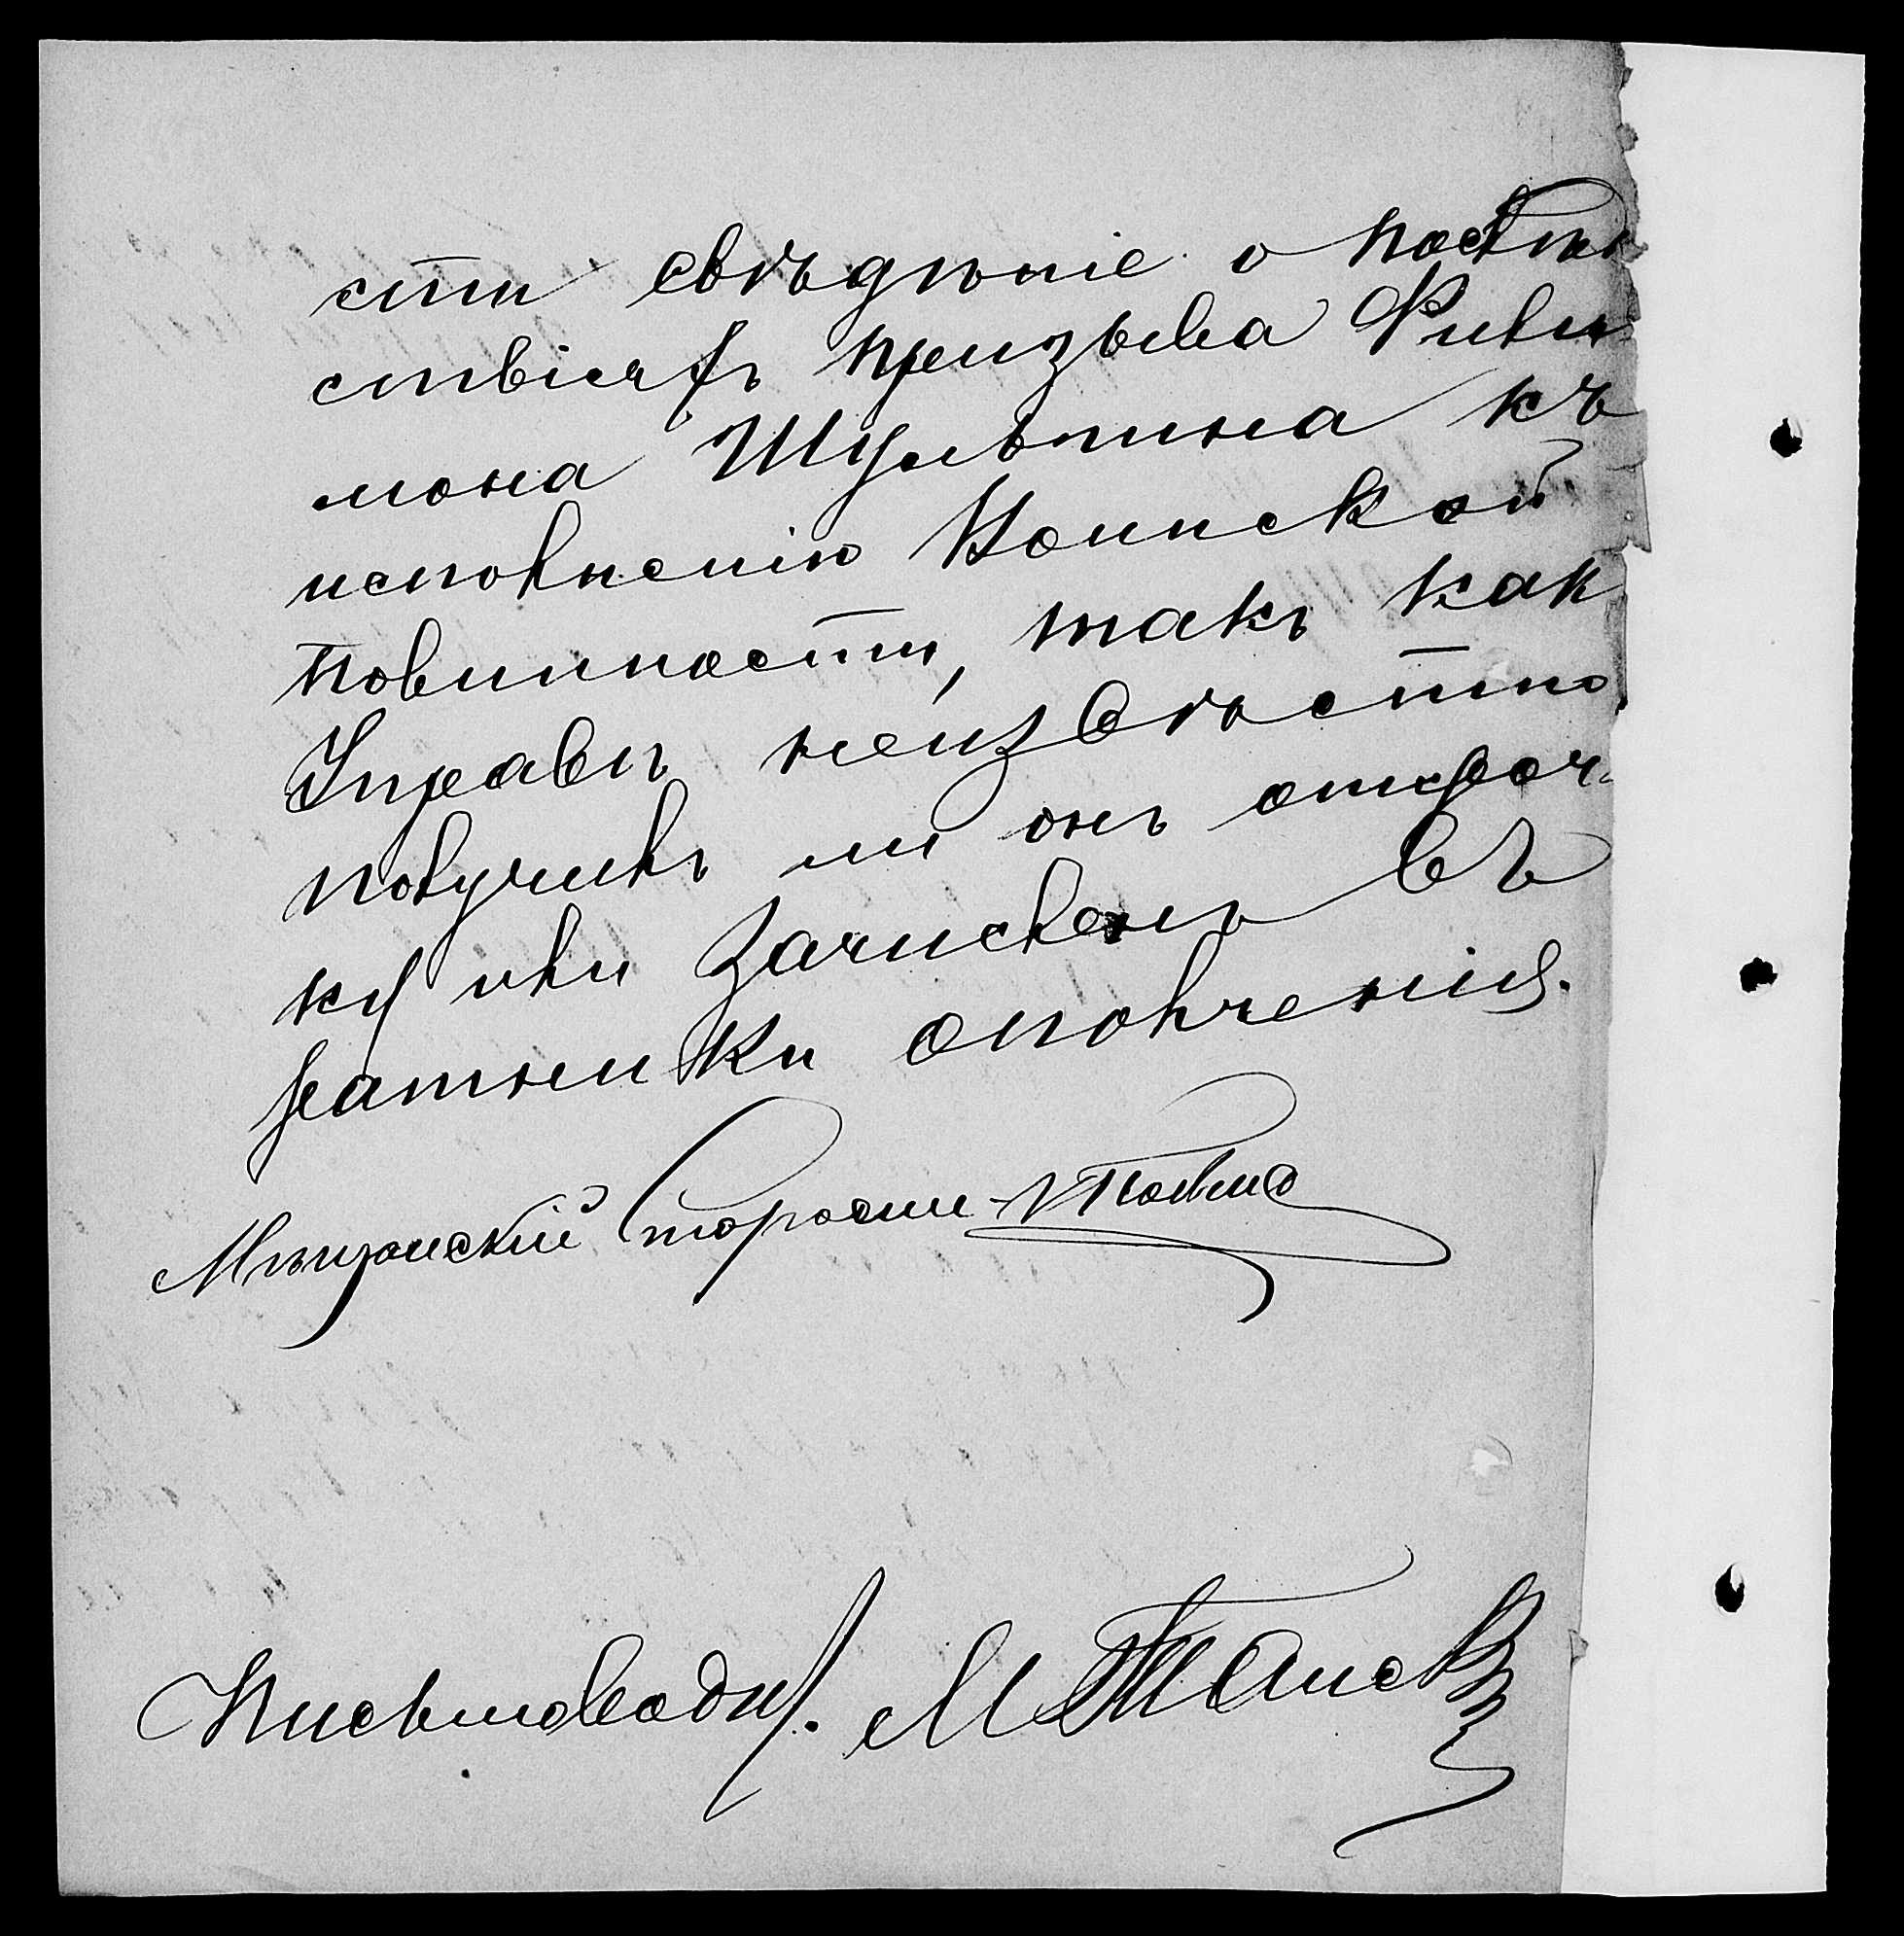 сти свѣдѣніе о послѣд
ствіяхъ призыва Фили
мона Шульпина къ
исполненію Воинской
повинности, такъ как
Управѣ неизвѣстно
получилъ ли онъ отсроч-
ку или зачисленъ въ
ратники ополченія.
Мѣщанскій Староста
Письмоводит. М